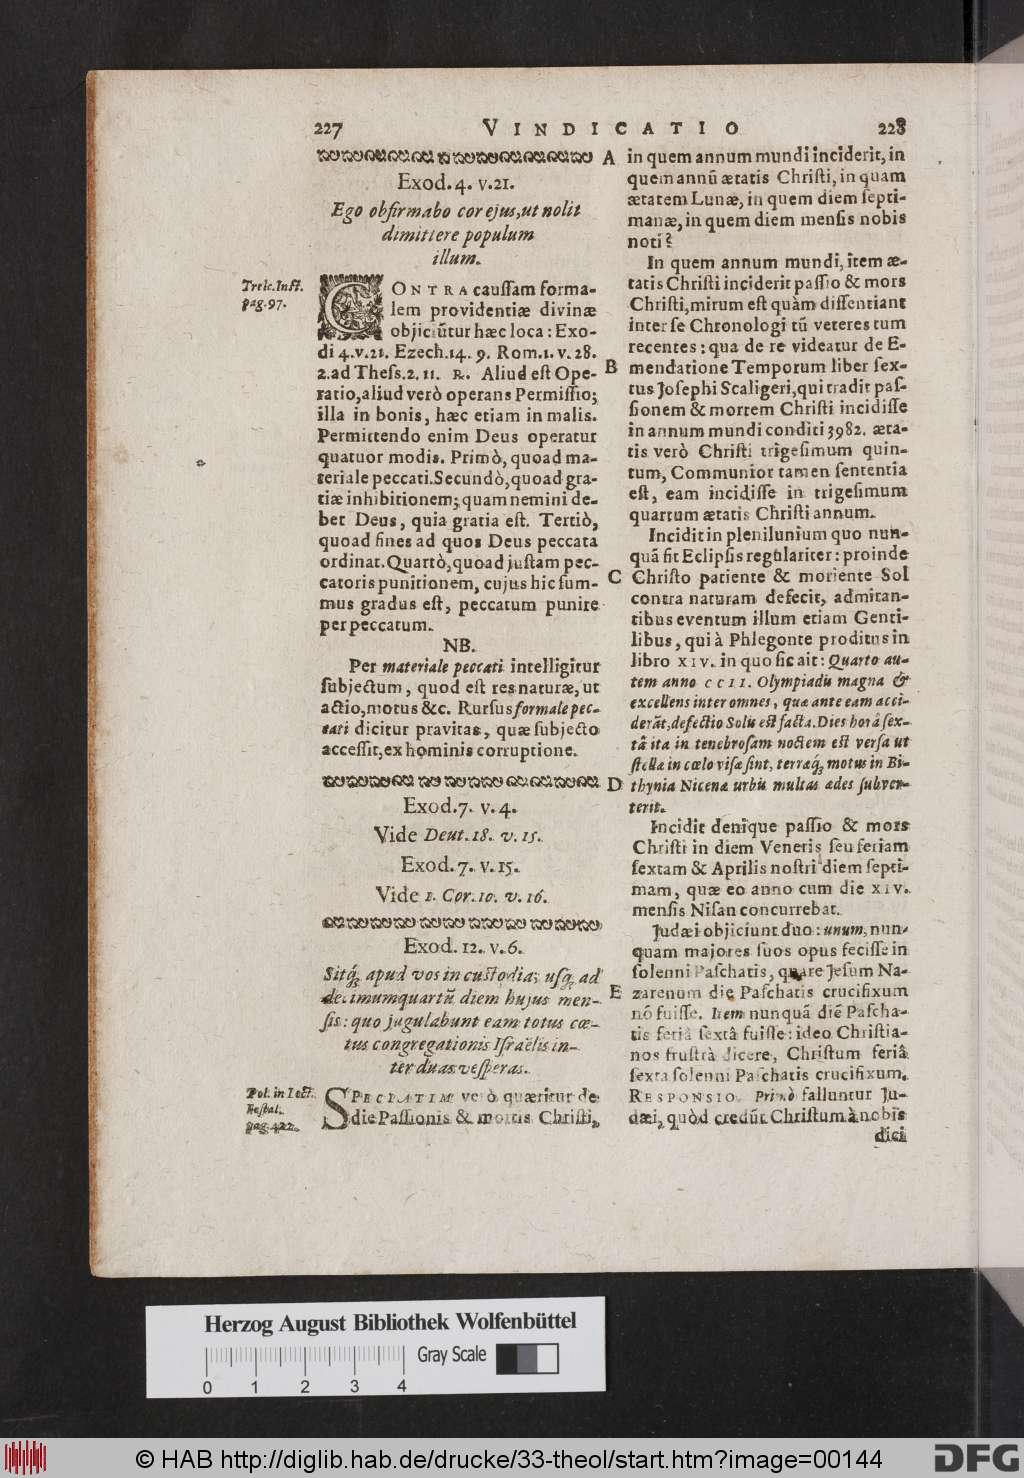 227 VINDICATIO 228
Exod. 4. v.21.
Ego obfirmabo cor ejus, ut nolit
dimittere populum
illum.
Trelc. Inst.
pag. 97.
CONTRA caussam forma-
lem providentiæ divinæ
objiciũtur hæc loca: Exo-
di 4.v.21. Ezech.14. 9. Rom.1. v. 28.
2.ad Thess.2. 11. R. Aliud est Ope-
ratio, aliud verò operans Permissio;
illa in bonis, hæc etiam in malis.
Permittendo enim Deus operatur
quatuor modis. Primò, quoad ma-
teriale peccati. Secundò, quoad gra-
tiæ inhibitionem; quam nemini de-
bet Deus, quia gratia est. Tertiò,
quoad fines ad quos Deus peccata
ordinat. Quartò, quoad justam pec-
catoris punitionem, cujus hic sum-
mus gradus est, peccatum punire
per peccatum.
NB.
Per materiale peccati intelligitur
subjectum, quod est res naturæ, ut
actio, motus &c. Rursus formale pec-
cati dicitur pravitas, quæ subjecto
accessit, ex hominis corruptione.
Exod. 7. v. 4.
Vide Deut. 18. v. 15.
Exod. 7. v. 15.
Vide 1. Cor. 10. v. 16.
Exod. 12. v. 6.
Sitq́; apud vos in custodia; usq́; ad
decimumquartũ diem hujus men-
sis: quo jugulabunt eam totus cœ-
tus congregationis Israëlis in-
ter duas vesperas.
Pol. in Lect.
Festal.
pag. 422.
SPECIATIM verò quæritur de
die Passionis & mortis Christi,
A in quem annum mundi inciderit, in
quem annũ ætatis Christi, in quam
ætatem Lunæ, in quem diem septi-
manæ, in quem diem mensis nobis
noti?
In quem annum mundi, item æ-
tatis Christi inciderit passio & mors
Christi, mirum est quàm dissentiant
inter se Chronologi tũ veteres tum
recentes: qua de re videatur de E-
B mendatione Temporum liber sex-
tus Josephi Scaligeri, qui tradit pas-
sionem & mortem Christi incidisse
in annum mundi conditi 3982. æta-
tis verò Christi trigesimum quin-
tum, Communior tamen sententia
est, eam incidisse in trigesimum
quartum ætatis Christi annum.
Incidit in plenilunium quo nun-
quã fit Eclipsis regulariter: proinde
C Christo patiente & moriente Sol
contra naturam defecit, admiran-
tibus eventum illum etiam Genti-
libus, qui à Phlegonte proditus in
libro XIV. in quo sic ait: Quarto au-
tem anno CCII. Olympiadis magna &
excellens inter omnes, quæ ante eam acci-
derãt, defectio Solis est facta. Dies horâ sex-
tâ ita in tenebrosam noctem est versa ut
stellæ in cœlo visæ sint, terræq́; motus in Bi-
D thynia Nicenæ urbis multas ædes subver-
terit.
Incidit denique passio & mors
Christi in diem Veneris seu feriam
sextam & Aprilis nostri diem septi-
mam, quæ eo anno cum die XIV.
mensis Nisan concurrebat.
Judæi objiciunt duo: unum, nun-
quam majores suos opus fecisse in
solenni Paschatis, quare Jesum Na-
E zarenum die Paschatis crucifixum
nõ fuisse. Item nunquã diẽ Pascha-
tis feriâ sextâ fuisse: ideo Christia-
nos frustrà dicere, Christum feriâ
sexta solenni Paschatis crucifixum.
RESPONSIO. Primò falluntur Ju-
dæi, quòd credũt Christum à nobis
dici
Herzog August Bibliothek Wolfenbüttel
Gray Scale
0 1 2 3 4
© HAB http://diglib.hab.de/drucke/33-theol/start.htm?image=00144
DFG